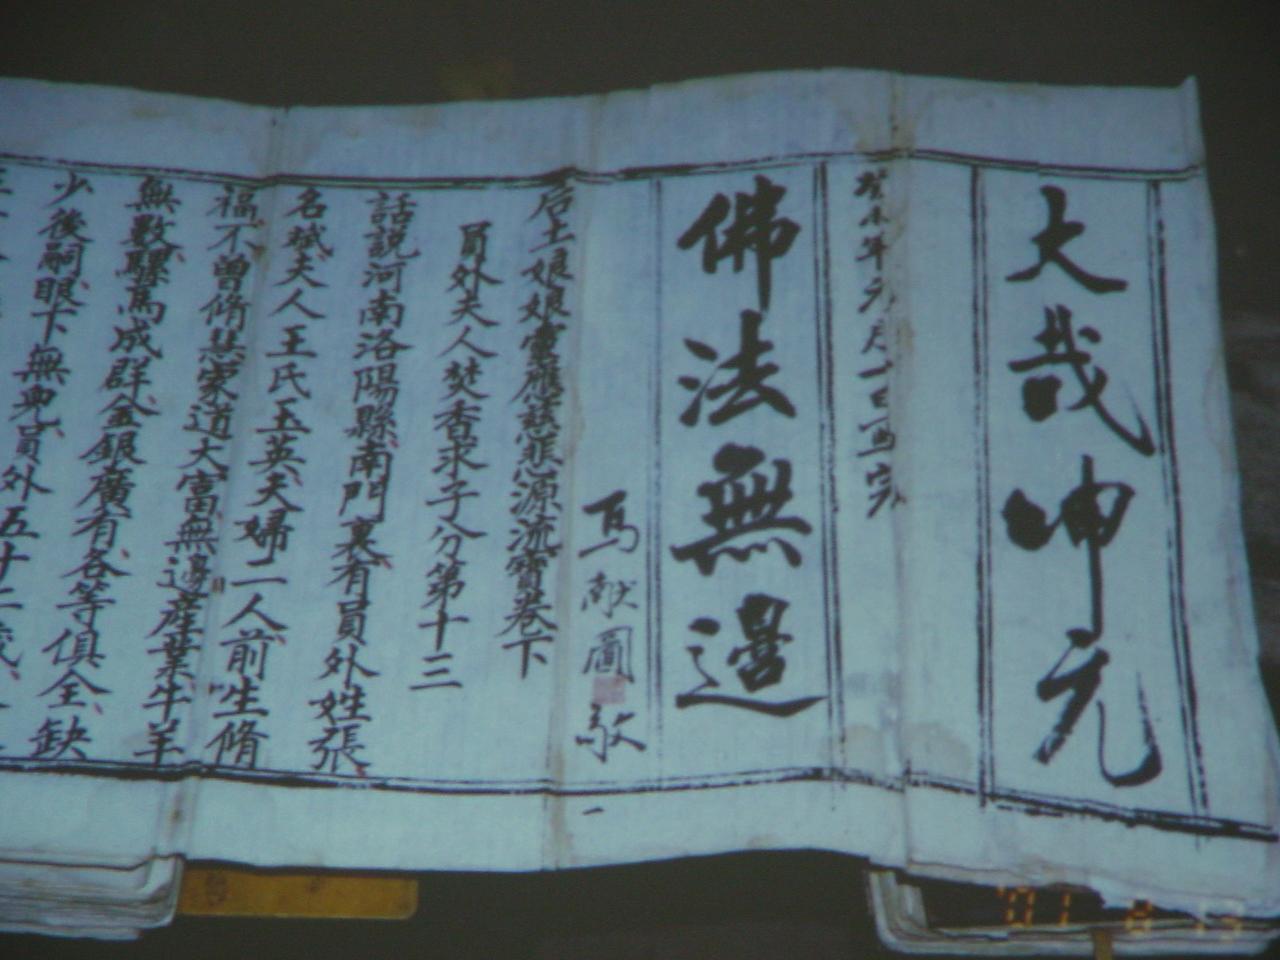 大哉坤元
癸未年元月一日
佛法無邊
馬献圖 敬
后土娘娘靈應慈悲源流寶卷下
員外夫人焚香求子分第十三
話説河南洛陽縣南門裏有員外姓張
名斌夫人王氏玉英夫婦二人前生脩
福不曾脩慧家道大富無邊産業牛羊
無數騾馬成群金銀廣有各等俱全缺
少後嗣眼下無兒員外五十二歲
'01 13